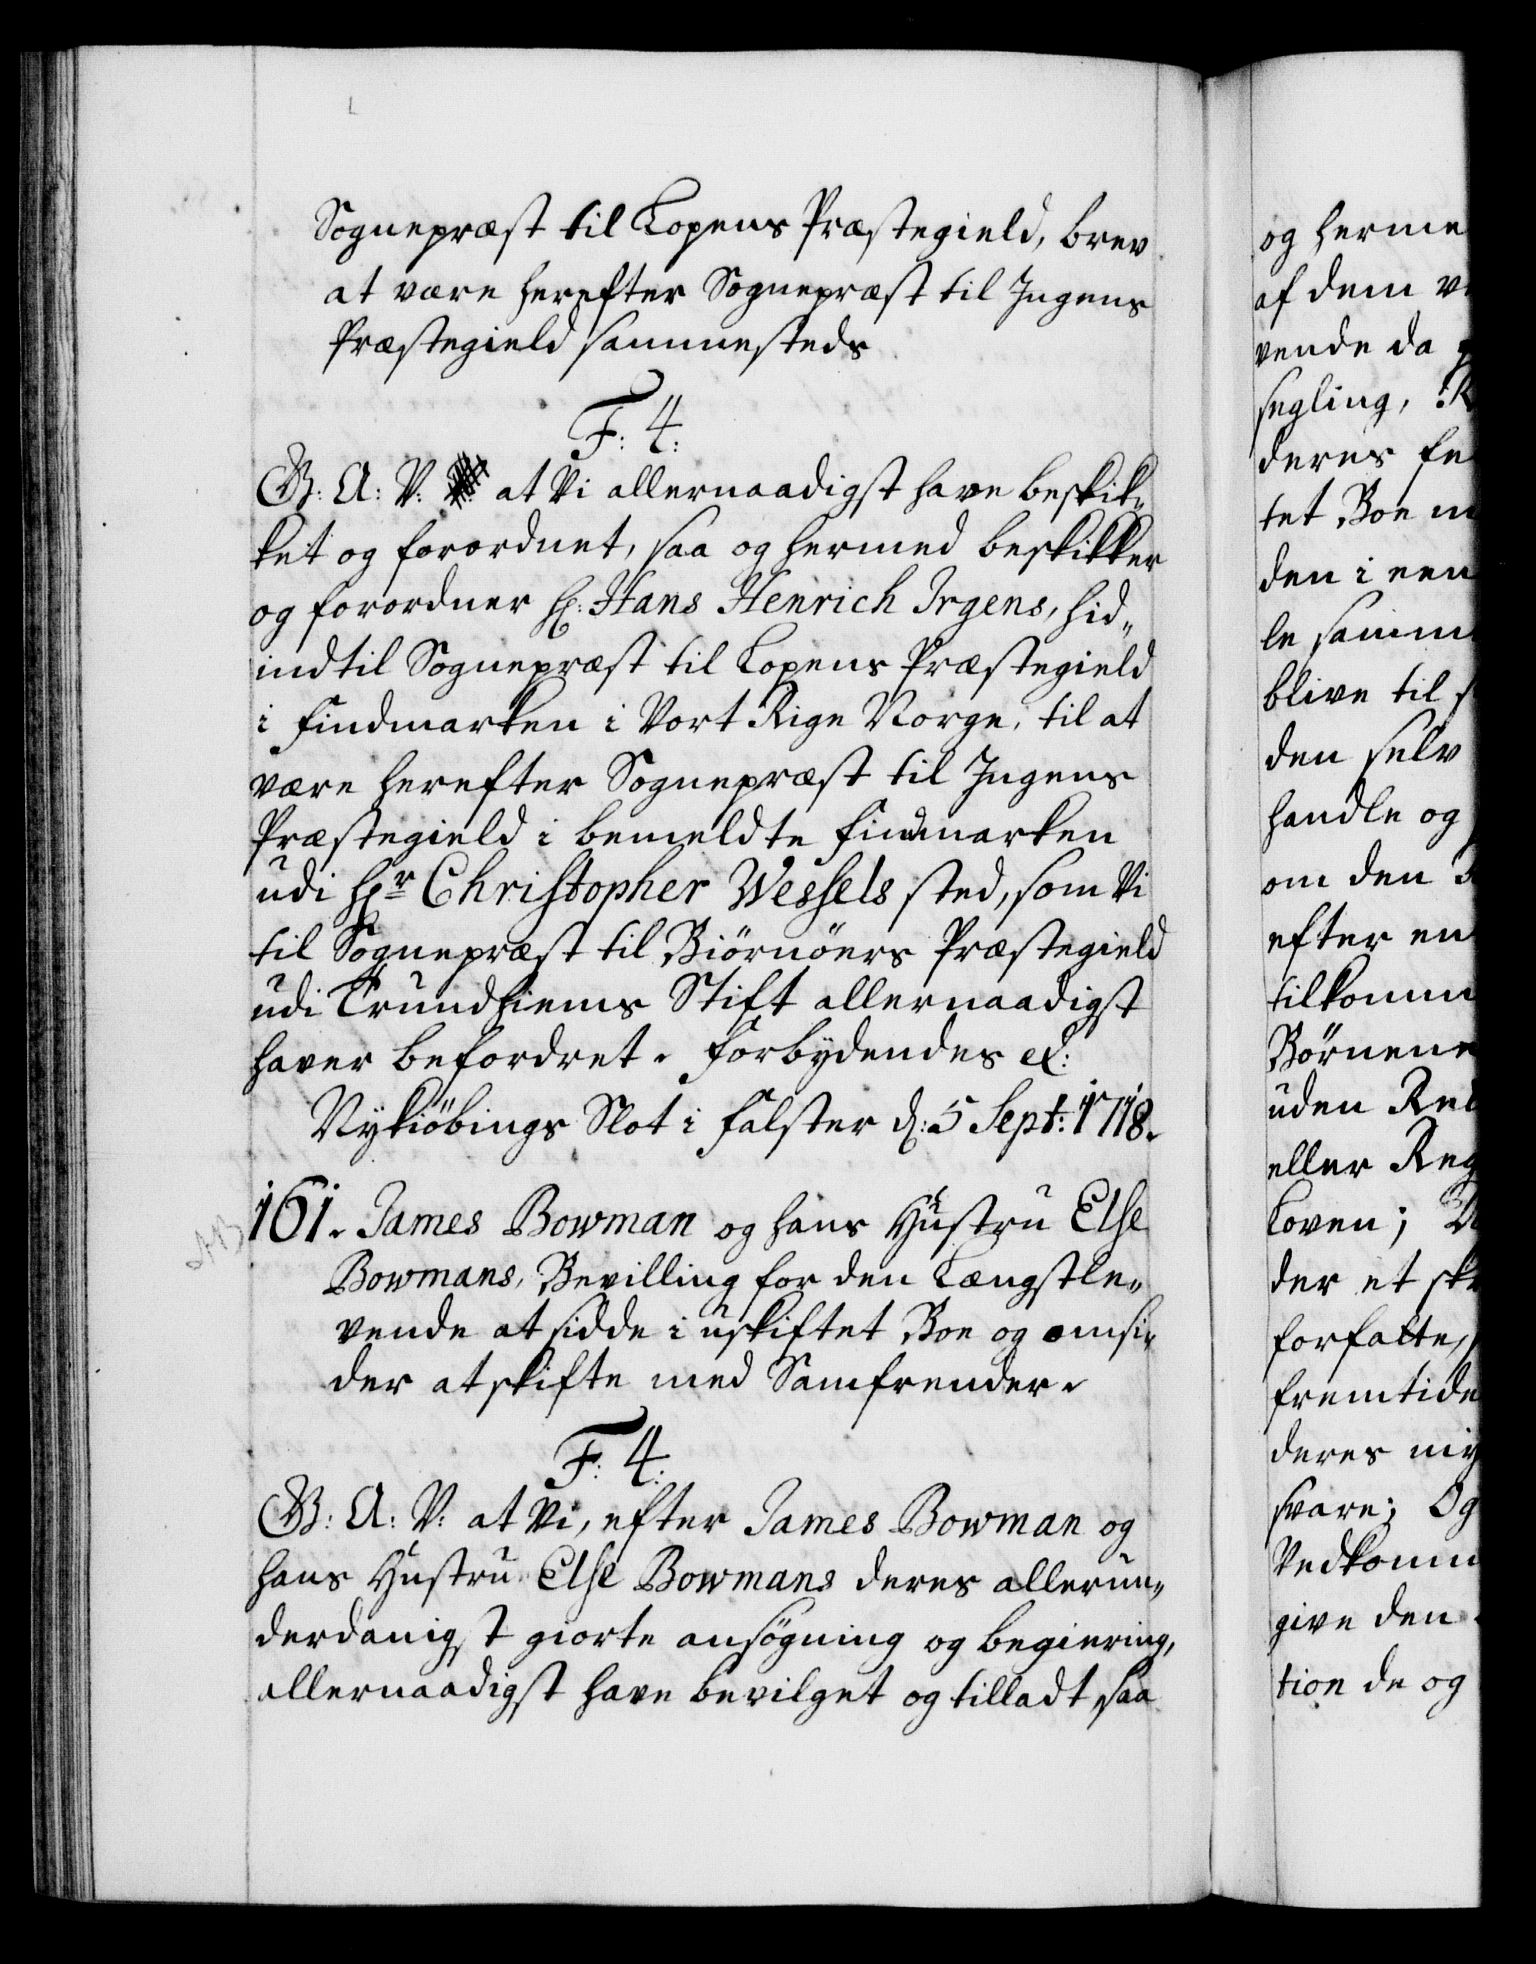 Sognepræst til Lopens Præstegield, brev
at være herefter Sognepræst til Ingens
Præstegield sammesteds
F: 4:
G: A: V: at Vi allernaadigst have beskik„
ket og forordnet, saa og hermed beskikker
og forordner H: Hans Henrich Irgens, hid„
indtil Sognepræst til Lopens Præstegield
i Findmarken i Vort Rige Norge, til at
være herefter Sognepræst til Ingens
Præstegield i bemeldte Findmarken
udi Hr Christopher Wessels sted, som Vi
til Sognepræst til Biörnöers Præstegield
udi Trundhiems Stift allernaadigst
haver befordret. Forbydendes etc:
Nykiöbings Slot i Falster d: 5 Sept: 1718.
161. James Bowman og hans Hustru Else
AB
Bowmans, Bevilling for den Længstle„
vende at sidde i uskiftet Boe og omsi„
der at skifte med Samfrender.
F: 4:
G: A: V: at Vi, efter James Bowman og
hans Hustru Else Bowmans deres allerun„
derdanigst giorte ansögning og begiering,
allernaadigst have bevilget og tilladt, saa
og herme
af dem
vende da
segling,
deres
tet Boe
den i een
le samm
blive til
den selv
handle og
om den
efter en
tilkomm
Börnene
uden
eller
Loven;
der et
forfatte,
fremtide
deres
svare; Og
Vedkomm
give den
tion de og